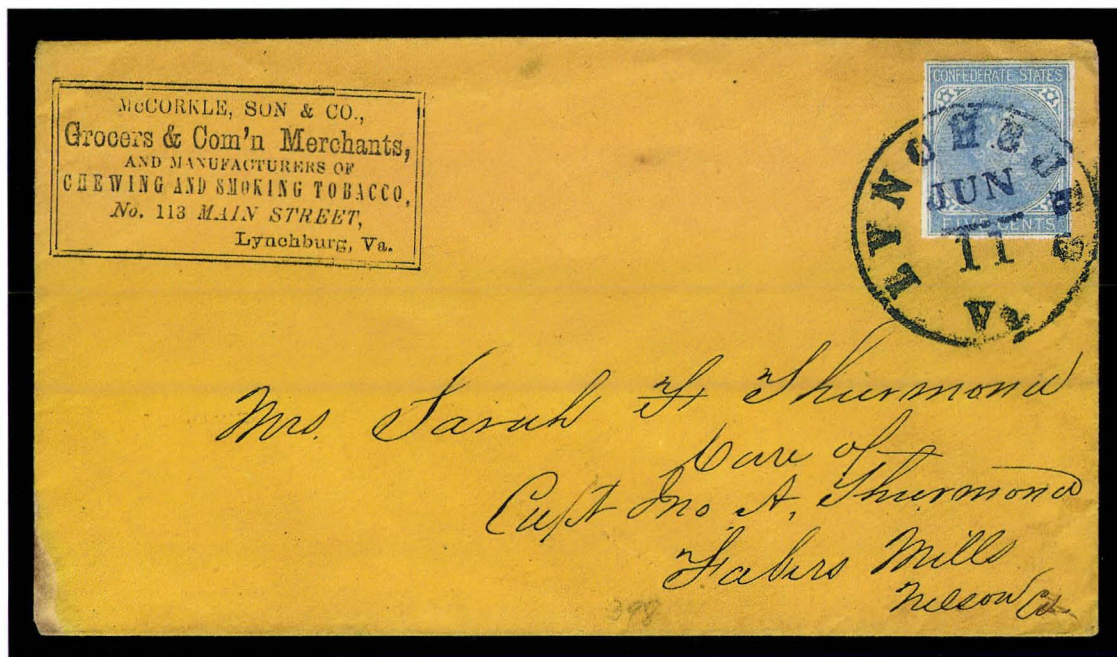 McCORKLE, SON & CO.,
Grocers & Com'n Merchants,
AND MANUFACTURERS OF
CHEWING AND SMOKING TOBACCO,
No. 113 MAIN STREET,
Lynchburg, Va.
CONFEDERATE STATES
FIVE CENTS
LYNCHBURG
JUN
11
VA
Mrs. Sarah F Thurmond
Care of
Capt Jno A. Thurmond
Fabers Mills
Nelson Co
398